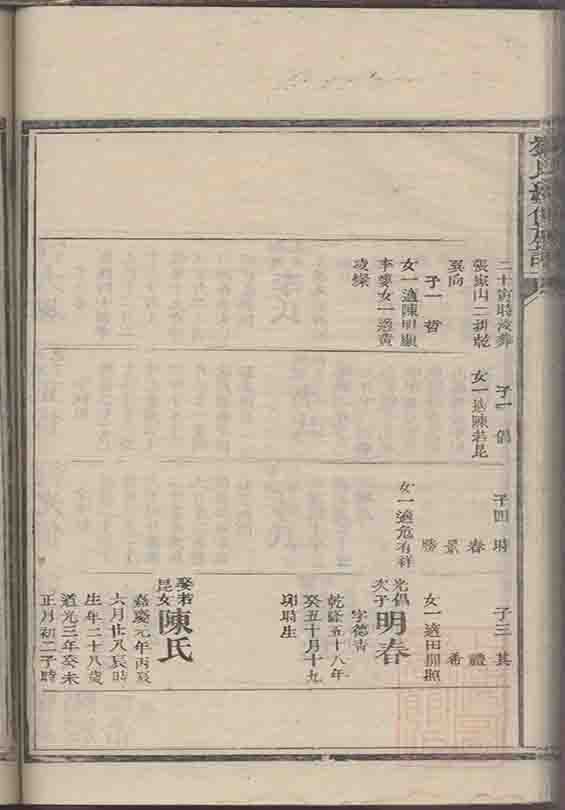 二十寅時没葬
張家山二排乾
巽向
子一 哲
女一適陳明顯
李婆女一適黄
凌燦
子一 偈
女一適陳若昆
子四 時
春
景
勝
女一適危有祥
子三 其
禮
希
女一適田開照
光偈
次子
明春
字德青
乾隆五十八年
癸丑十月十九
卯時生
娶若
昆女
陳氏
嘉慶元年丙辰
六月廿八辰時
生年二十八歲
道光三年癸未
正月初二子時